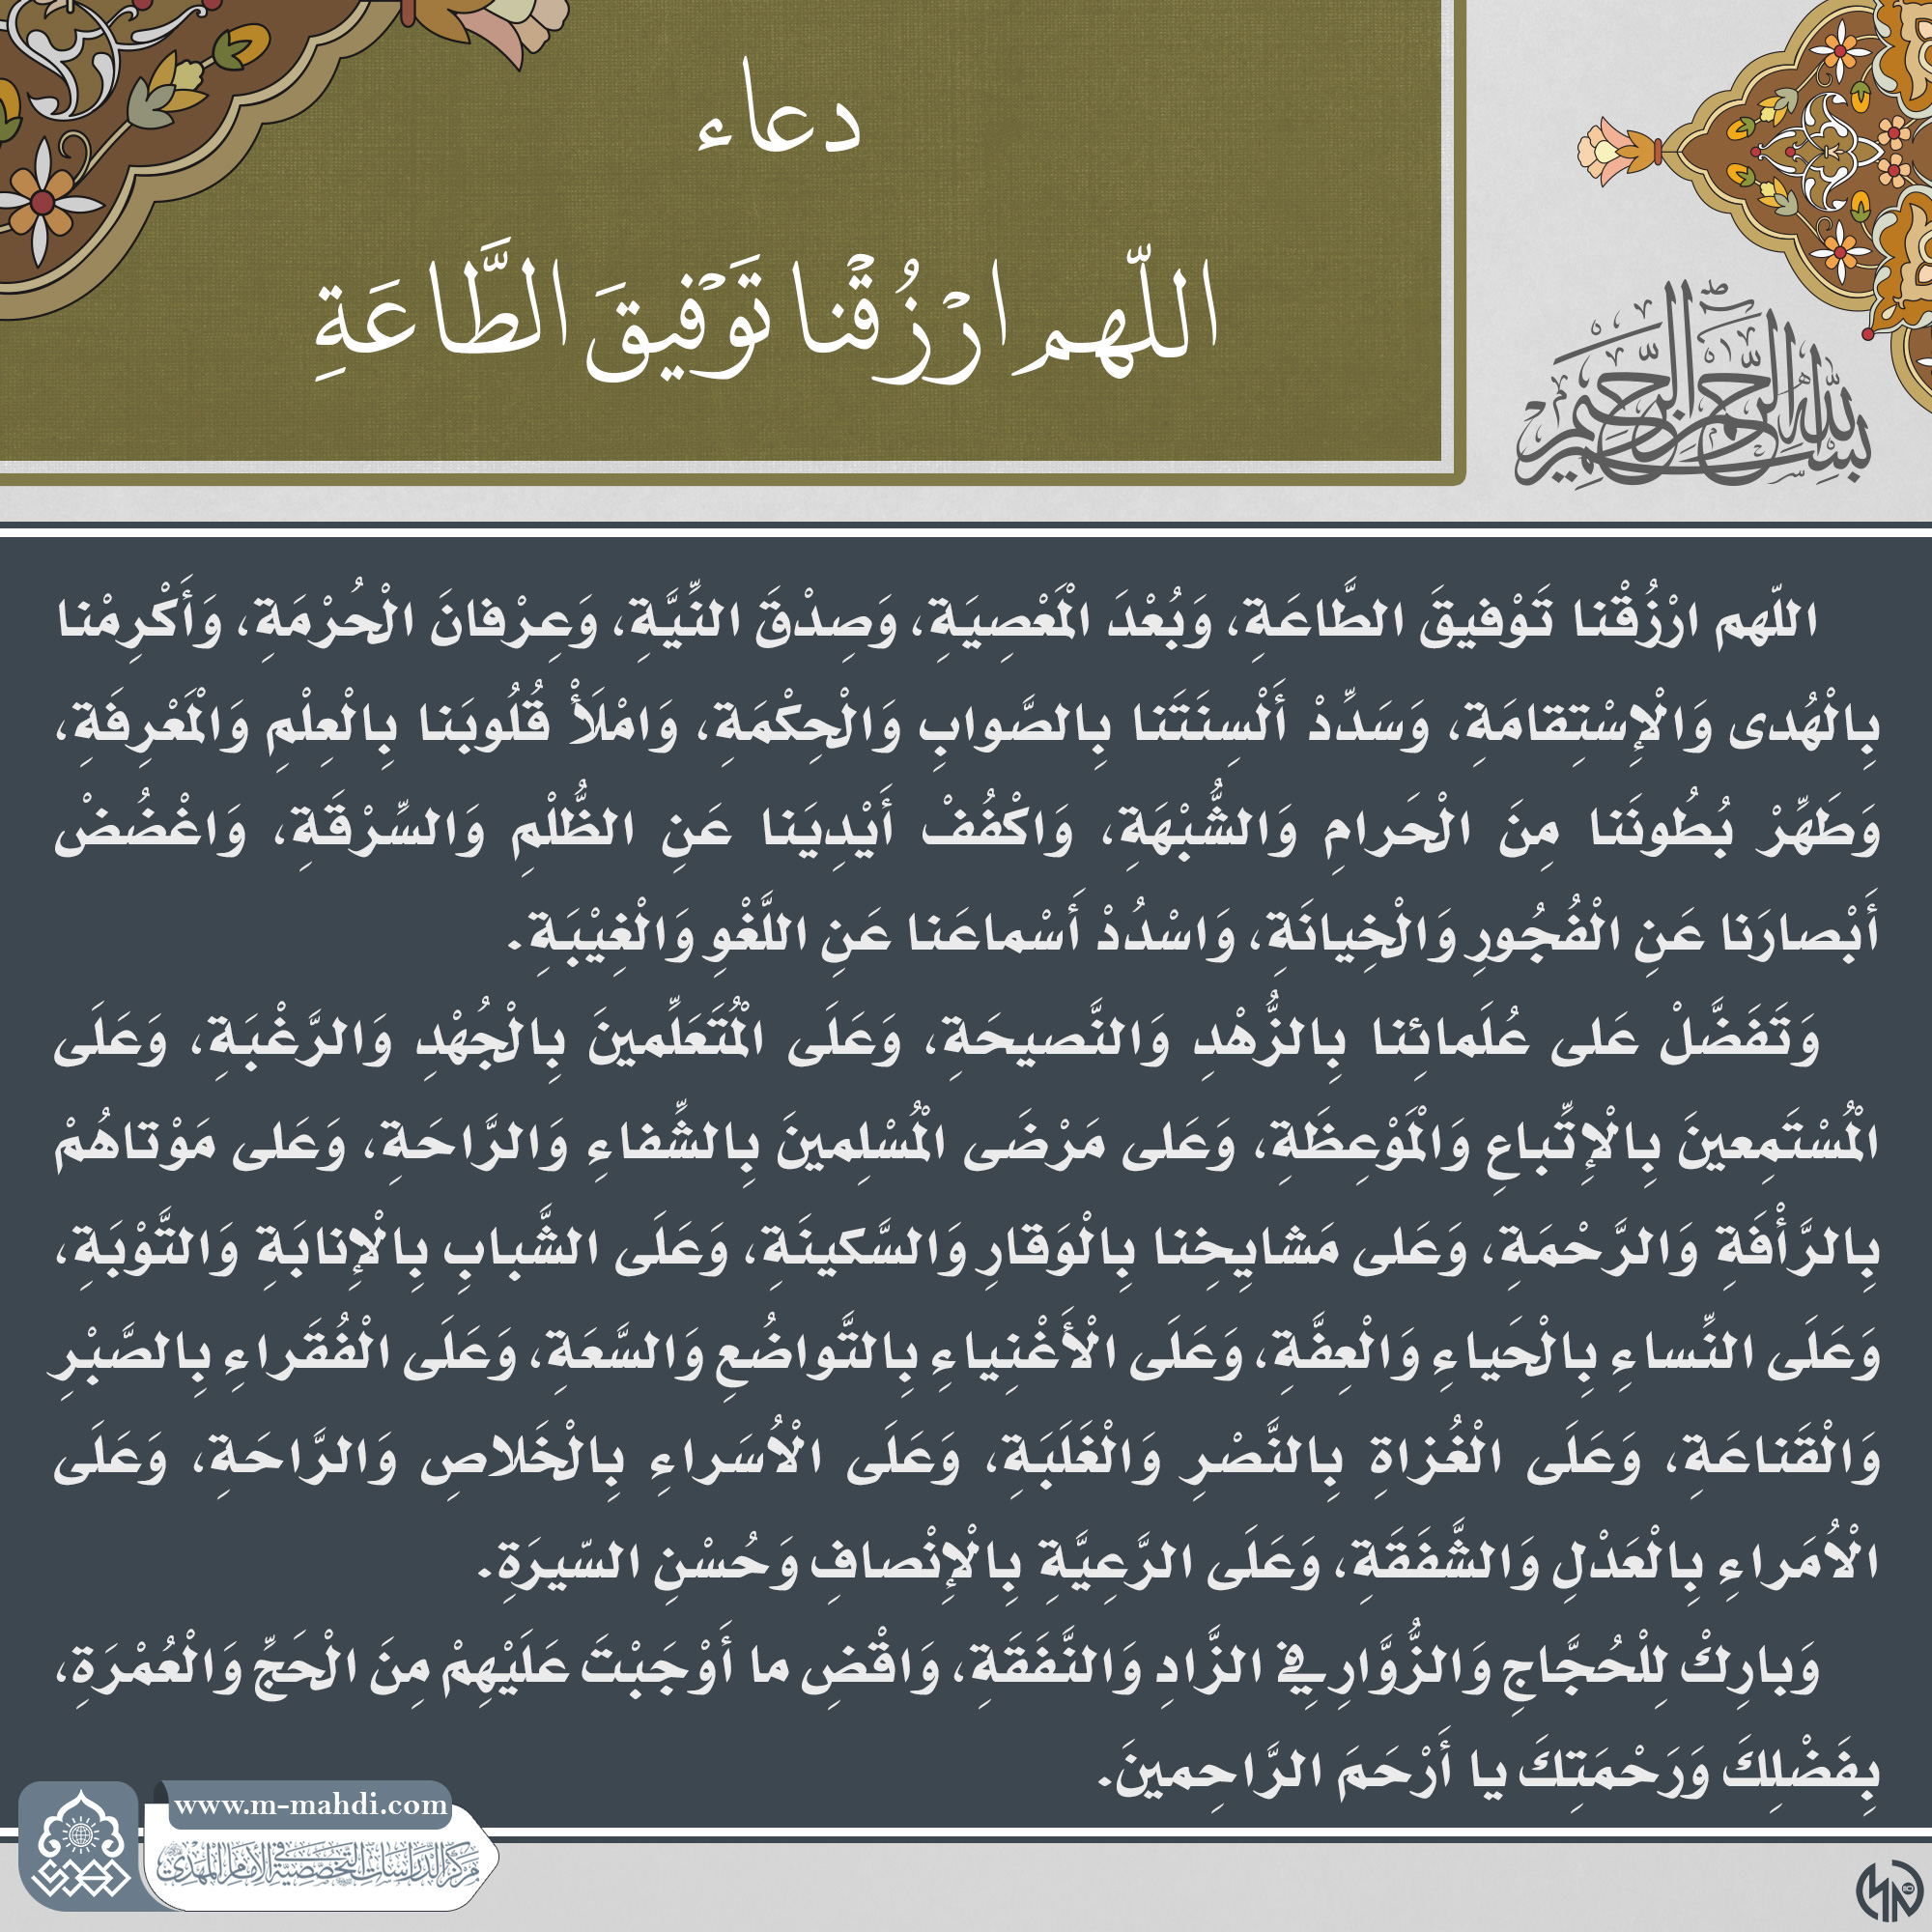 دعاء
اللّهم ارْزُقْنا تَوْفيقَ الطَّاعَةِ
بسم الله الرحمن الرحيم
اللّهم ارْزُقْنا تَوْفيقَ الطَّاعَةِ، وَبُعْدَ الْمَعْصِيَةِ، وَصِدْقَ النِّيَّةِ، وَعِرْفانَ الْحُرْمَةِ، وَأَكْرِمْنا
بِالْهُدى وَالْإِسْتِقامَةِ، وَسَدِّدْ أَلْسِنَتَنا بِالصَّوابِ وَالْحِكْمَةِ، وَامْلَأْ قُلُوبَنا بِالْعِلْمِ وَالْمَعْرِفَةِ،
وَطَهِّرْ بُطُونَنا مِنَ الْحَرامِ وَالشُّبْهَةِ، وَاكْفُفْ أَيْدِيَنا عَنِ الظُّلْمِ وَالسِّرْقَةِ، وَاغْضُضْ
أَبْصارَنا عَنِ الْفُجُورِ وَالْخِيانَةِ، وَاسْدُدْ أَسْماعَنا عَنِ اللَّغْوِ وَالْغِيْبَةِ.
وَتَفَضَّلْ عَلى عُلَمائِنا بِالزُّهْدِ وَالنَّصيحَةِ، وَعَلَى الْمُتَعَلِّمينَ بِالْجُهْدِ وَالرَّغْبَةِ، وَعَلَى
الْمُسْتَمِعينَ بِالْإِتِّباعِ وَالْمَوْعِظَةِ، وَعَلى مَرْضَى الْمُسْلِمينَ بِالشِّفاءِ وَالرَّاحَةِ، وَعَلى مَوْتاهُمْ
بِالرَّأْفَةِ وَالرَّحْمَةِ، وَعَلى مَشايِخِنا بِالْوَقارِ وَالسَّكينَةِ، وَعَلَى الشَّبابِ بِالْإِنابَةِ وَالتَّوْبَةِ،
وَعَلَى النِّساءِ بِالْحَياءِ وَالْعِفَّةِ، وَعَلَى الْأَغْنِياءِ بِالتَّواضُعِ وَالسَّعَةِ، وَعَلَى الْفُقَراءِ بِالصَّبْرِ
وَالْقَناعَةِ، وَعَلَى الْغُزاةِ بِالنَّصْرِ وَالْغَلَبَةِ، وَعَلَى الْاُسَراءِ بِالْخَلاصِ وَالرَّاحَةِ، وَعَلَى
الْاُمَراءِ بِالْعَدْلِ وَالشَّفَقَةِ، وَعَلَى الرَّعِيَّةِ بِالْإِنْصافِ وَحُسْنِ السّيرَةِ.
وَبارِكْ لِلْحُجَّاجِ وَالزُّوَّارِ فِي الزَّادِ وَالنَّفَقَةِ، وَاقْضِ ما أَوْجَبْتَ عَلَيْهِمْ مِنَ الْحَجِّ وَالْعُمْرَةِ،
بِفَضْلِكَ وَرَحْمَتِكَ يا أَرْحَمَ الرَّاحِمينَ.
www.m-mahdi.com
مركز الدراسات التخصصية في الإمام المهدي